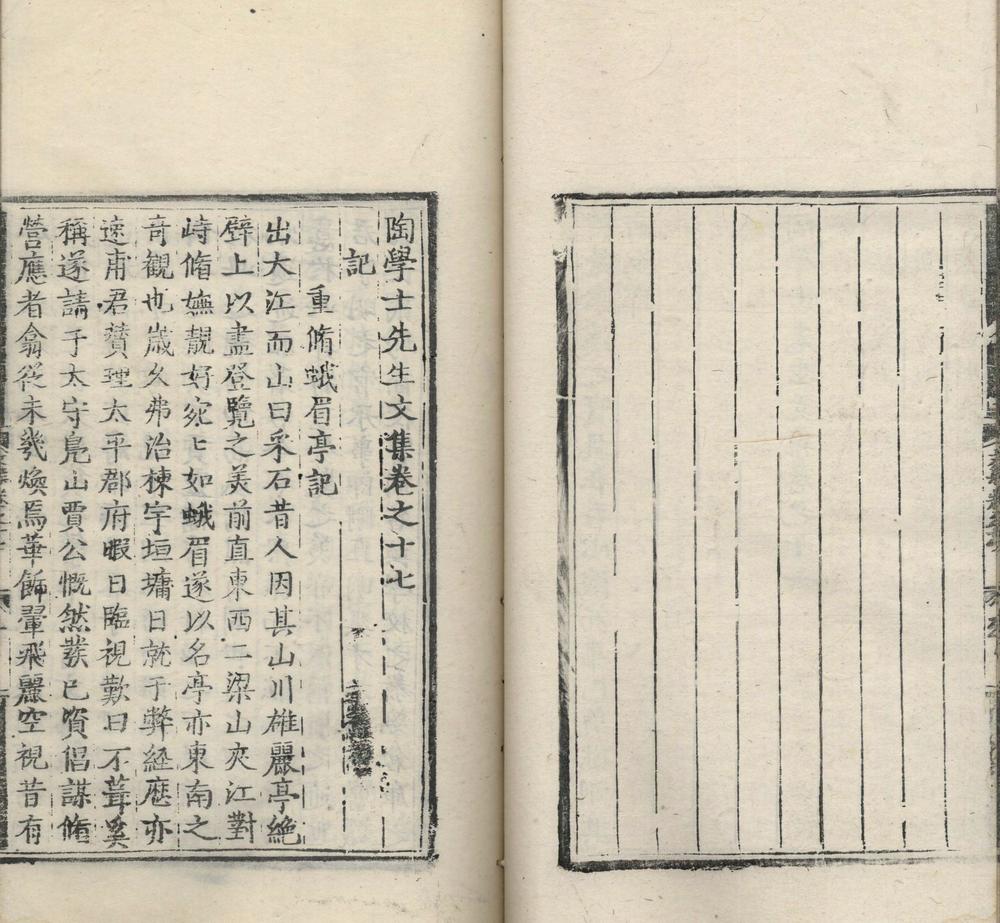 陶學士先生文集卷之十七
記
重脩蛾眉亭記
出大江而山曰采石昔人因其山川雄麗亭絶
壁上以盡登覽之美前直東西二梁山夾江對
峙脩嫵靚好宛〻如蛾眉遂以名亭亦東南之
奇觀也歳久弗治棟宇垣墉日就于弊経庶亦
速甫君賛理太平郡府暇日臨視歎曰不葺奚
稱遂請于太守鳧山賈公慨然發已資倡謀脩
營應者翕從未幾煥焉華飾翬飛麗空視昔有